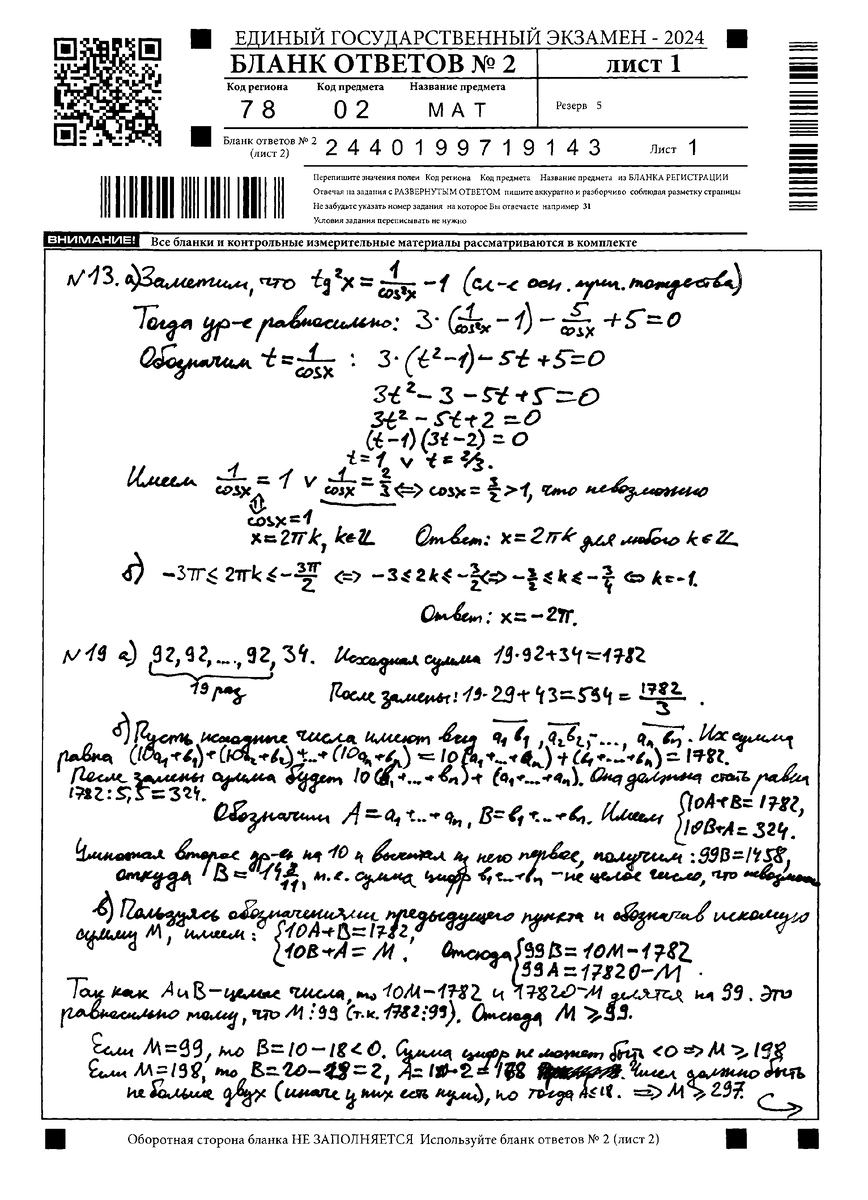 ЕДИНЫЙ ГОСУДАРСТВЕННЫЙ ЭКЗАМЕН - 2024
БЛАНК ОТВЕТОВ № 2 лист 1
Код региона Код предмета Название предмета
78 02 МАТ Резерв 5
Бланк ответов № 2 (лист 2) 2440199719143 Лист 1
Перепишите значения полей Код региона Код предмета Название предмета из БЛАНКА РЕГИСТРАЦИИ
Отвечая на задания с РАЗВЕРНУТЫМ ОТВЕТОМ пишите аккуратно и разборчиво соблюдая разметку страницы
Не забудьте указать номер задания на которое Вы отвечаете например 31
Условия задания переписывать не нужно
ВНИМАНИЕ! Все бланки и контрольные измерительные материалы рассматриваются в комплекте
№13. а) Заметим, что tg²x = 1/cos²x - 1 (сл-е осн. триг. тождества)
Тогда ур-е равносильно: 3·(1/cos²x - 1) - 5/cosx + 5 = 0
Обозначим t = 1/cosx : 3·(t²-1) - 5t + 5 = 0
3t² - 3 - 5t + 5 = 0
3t² - 5t + 2 = 0
(t-1)(3t-2) = 0
t=1 ∨ t=2/3.
Имеем 1/cosx = 1 ∨ 1/cosx = 2/3 ⇔ cosx = 3/2 > 1, что невозможно
⇕
cosx = 1
x = 2πk, k∈ℤ Ответ: x = 2πk для любого k∈ℤ
б) -3π ≤ 2πk ≤ -3π/2 ⇔ -3 ≤ 2k ≤ -3/2 ⇔ -3/2 ≤ k ≤ -3/4 ⇔ k=-1.
Ответ: x = -2π.
№19 а) 92, 92, ..., 92, 34. Исходная сумма 19·92+34=1782
19 раз После замены: 19·29+43=594 = 1782/3.
б) Пусть исходные числа имеют вид a₁b₁, a₂b₂, ..., aₙbₙ. Их сумма
равна (10a₁+b₁)+(10a₂+b₂)+...+(10aₙ+bₙ) = 10(a₁+...+aₙ)+(b₁+...+bₙ)=1782.
После замены сумма будет 10(b₁+...+bₙ)+(a₁+...+aₙ). Она должна стать равна
1782:5,5=324.
Обозначим A=a₁+...+aₙ, B=b₁+...+bₙ. Имеем {10A+B=1782,
10B+A=324.
Умножая второе ур-е на 10 и вычитая из него первое, получим: 99B=1458,
откуда B = 14 8/11, т.е. сумма цифр b₁+...+bₙ - не целое число, что невозможно
в) Пользуясь обозначениями предыдущего пункта и обозначив искомую
сумму M, имеем: {10A+B=1782,
10B+A=M. Отсюда {99B=10M-1782
99A=17820-M.
Так как A и B - целые числа, то 10M-1782 и 17820-M делятся на 99. Это
равносильно тому, что M⋮99 (т.к. 1782⋮99). Отсюда M ≥ 99.
Если M=99, то B=10-18<0. Сумма цифр не может быть <0 ⇒ M ≥ 198
Если M=198, то B=20-18=2, A=180-2=178. Чисел должно быть
не больше двух (иначе у них есть нули), но тогда A≤18. ⇒ M ≥ 297.
Оборотная сторона бланка НЕ ЗАПОЛНЯЕТСЯ Используйте бланк ответов № 2 (лист 2)